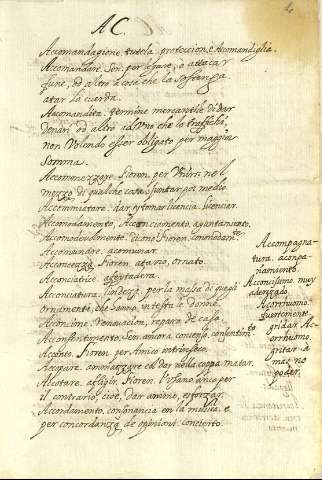 AC.
Acomandagione, tutela, proteccion, ò Acomandiglia.
Acomandare, Sen. por legare, o attacar
fune, od altro à cose che la sostenga
atar la cuerda.
Acomandita, termine mercantile di dar
denari od altro ad uno che lo traffichi,
non volendo esser obligato per maggior
somma.
Acomenezzare, Fioren. per Unirsi nel
mezzo di qualche cosa, juntar por medio.
Acommiatare, dar, y tomar licencia, licenciar.
Acomodamento, Aconciamento, ajuntamiento.
Acomodevolmente, dicono Fioren. comodam.te
Acomunare, acomunar.
Aconezza, Fioren. atavio, ornato.
Aconciatrice, afeytadera.
Aconciatura, per la
ornamente, che hanno in testa le donne.
Aconcime, renovacion, reparo de casa.
Aconsentimento, Sem. ancora, consenso, consentim.to
Aconto, Fioren. per Amico intrinseco.
Acopare, ammazzare col dar nella coppa, matar.
Acorare, affligir, Fioren. Usano anco per
il contrario, cioè, dar animo, esforzar.
Acordamento, consonancia en la musica, e
per concordanza de opinioni. concierto.
Acompagna-
tura, acompa-
ñamiento.
Aconcissimo, muy
aderezado.
Acorruomo,
fuertemente
gridar, Ac-
orruomo,
gritar a
mas no
poder.